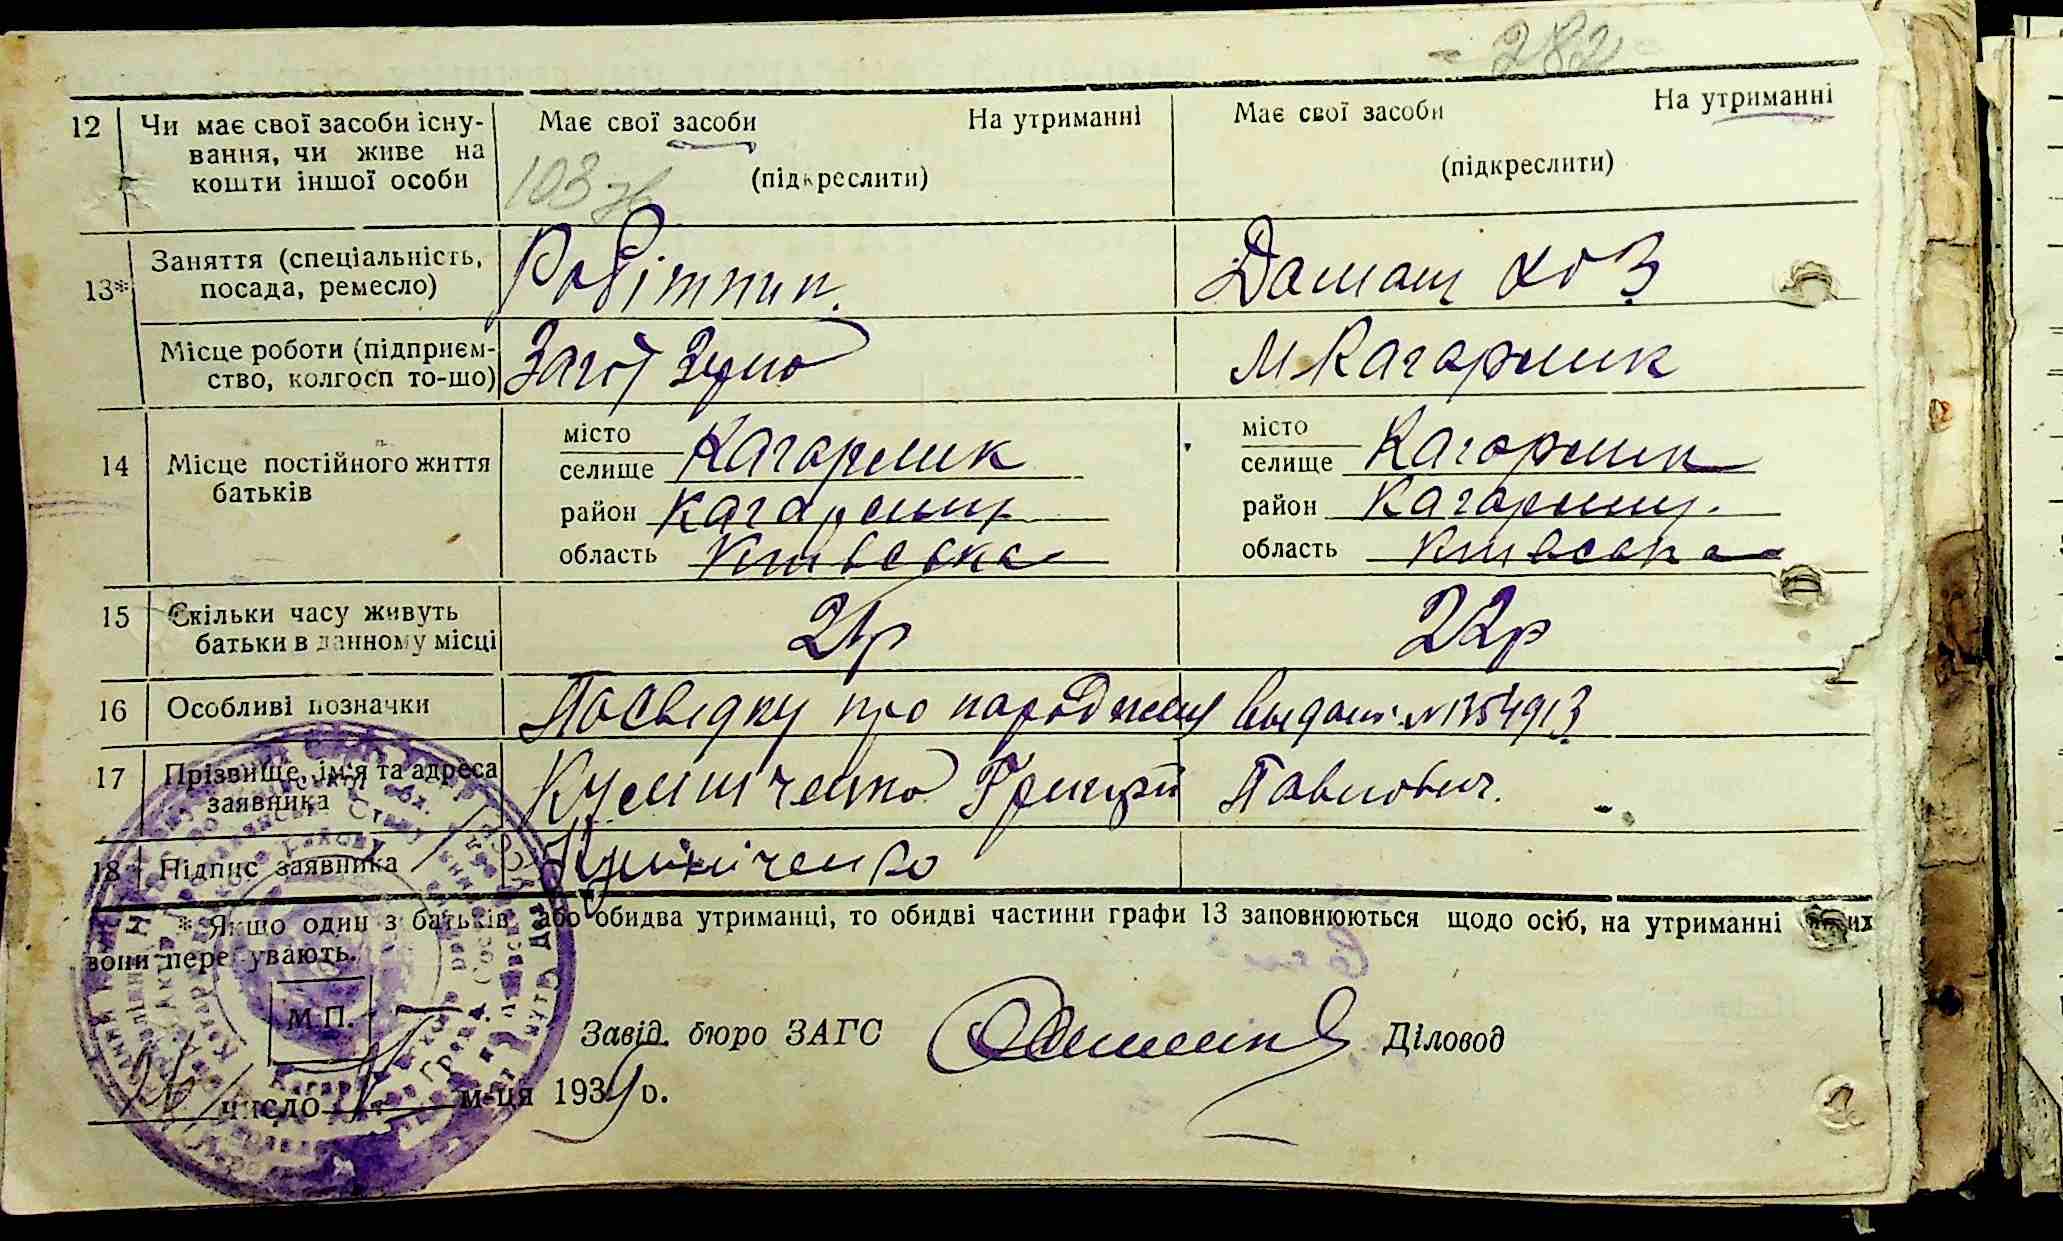 - 282
12 Чи має свої засоби існу- Має свої засоби На утриманні Має свої засоби На утриманні
вання, чи живе на
кошти іншої особи (підкреслити) (підкреслити)
103
13* Заняття (спеціальність, Робітник. Домаш хоз
посада, ремесло)
Місце роботи (підприєм- Загот Зерно м Кагарлик
ство, колгосп то-що)
14 Місце постійного життя місто Кагарлик місто Кагарлик
батьків селище селище
район Кагарлиц район Кагарлиц.
область Київська область Київська
15 Скільки часу живуть 21р 22р
батьки в данному місці
16 Особливі позначки Посвідку про народження видано №1354913
17 Прізвище, ім'я та адреса Григорій Павлович.
заявника
18 Підпис заявника
* Якщо один з батьків, або обидва утриманці, то обидві частини графи 13 заповнюються щодо осіб, на утриманні яких
вони перебувають.
М.П.
Завід. бюро ЗАГС Діловод
26 число м-ця 1939 р.